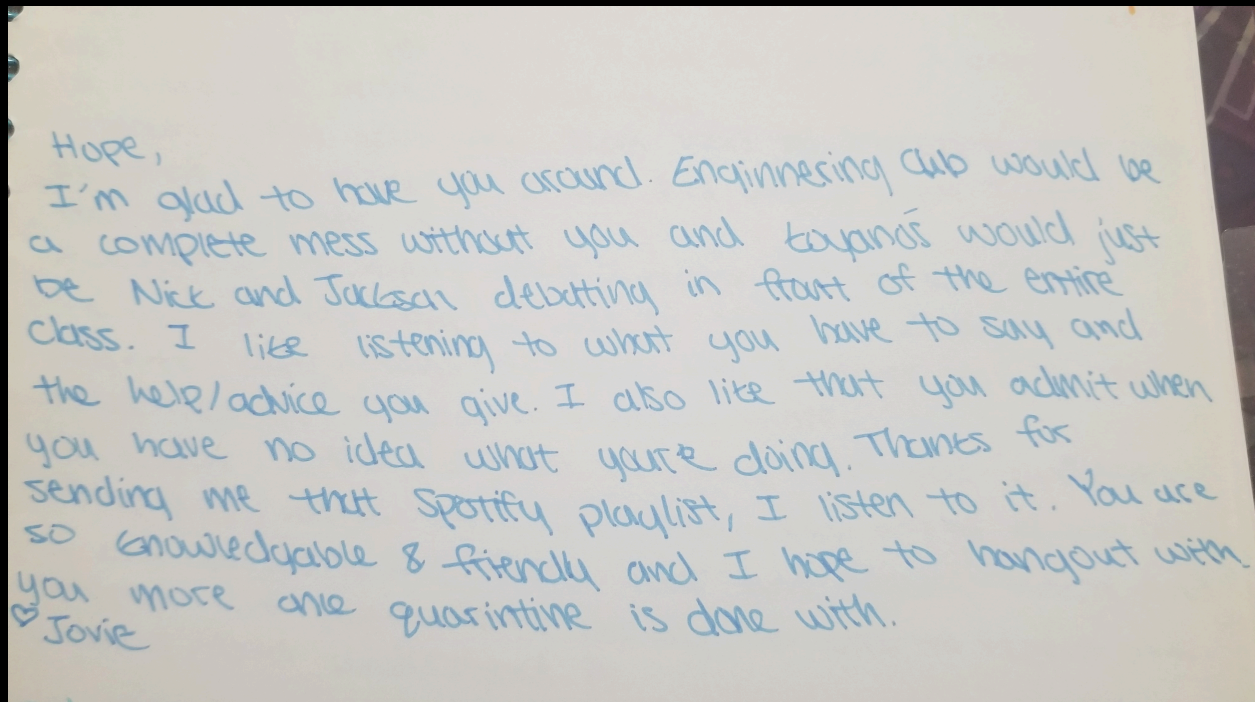 Hope,
I'm glad to have you around. Enginnering Club would be
a complete mess without you and Koyano's would just
be Nick and Jackson debatting in front of the entire
class. I like listening to what you have to say and
the help/advice you give. I also like that you admit when
you have no idea what you're doing. Thanks for
sending me that Spotify playlist, I listen to it. You are
so knowledgable & friendly and I hope to hangout with
you more once quarintine is done with.
♡ Jovie